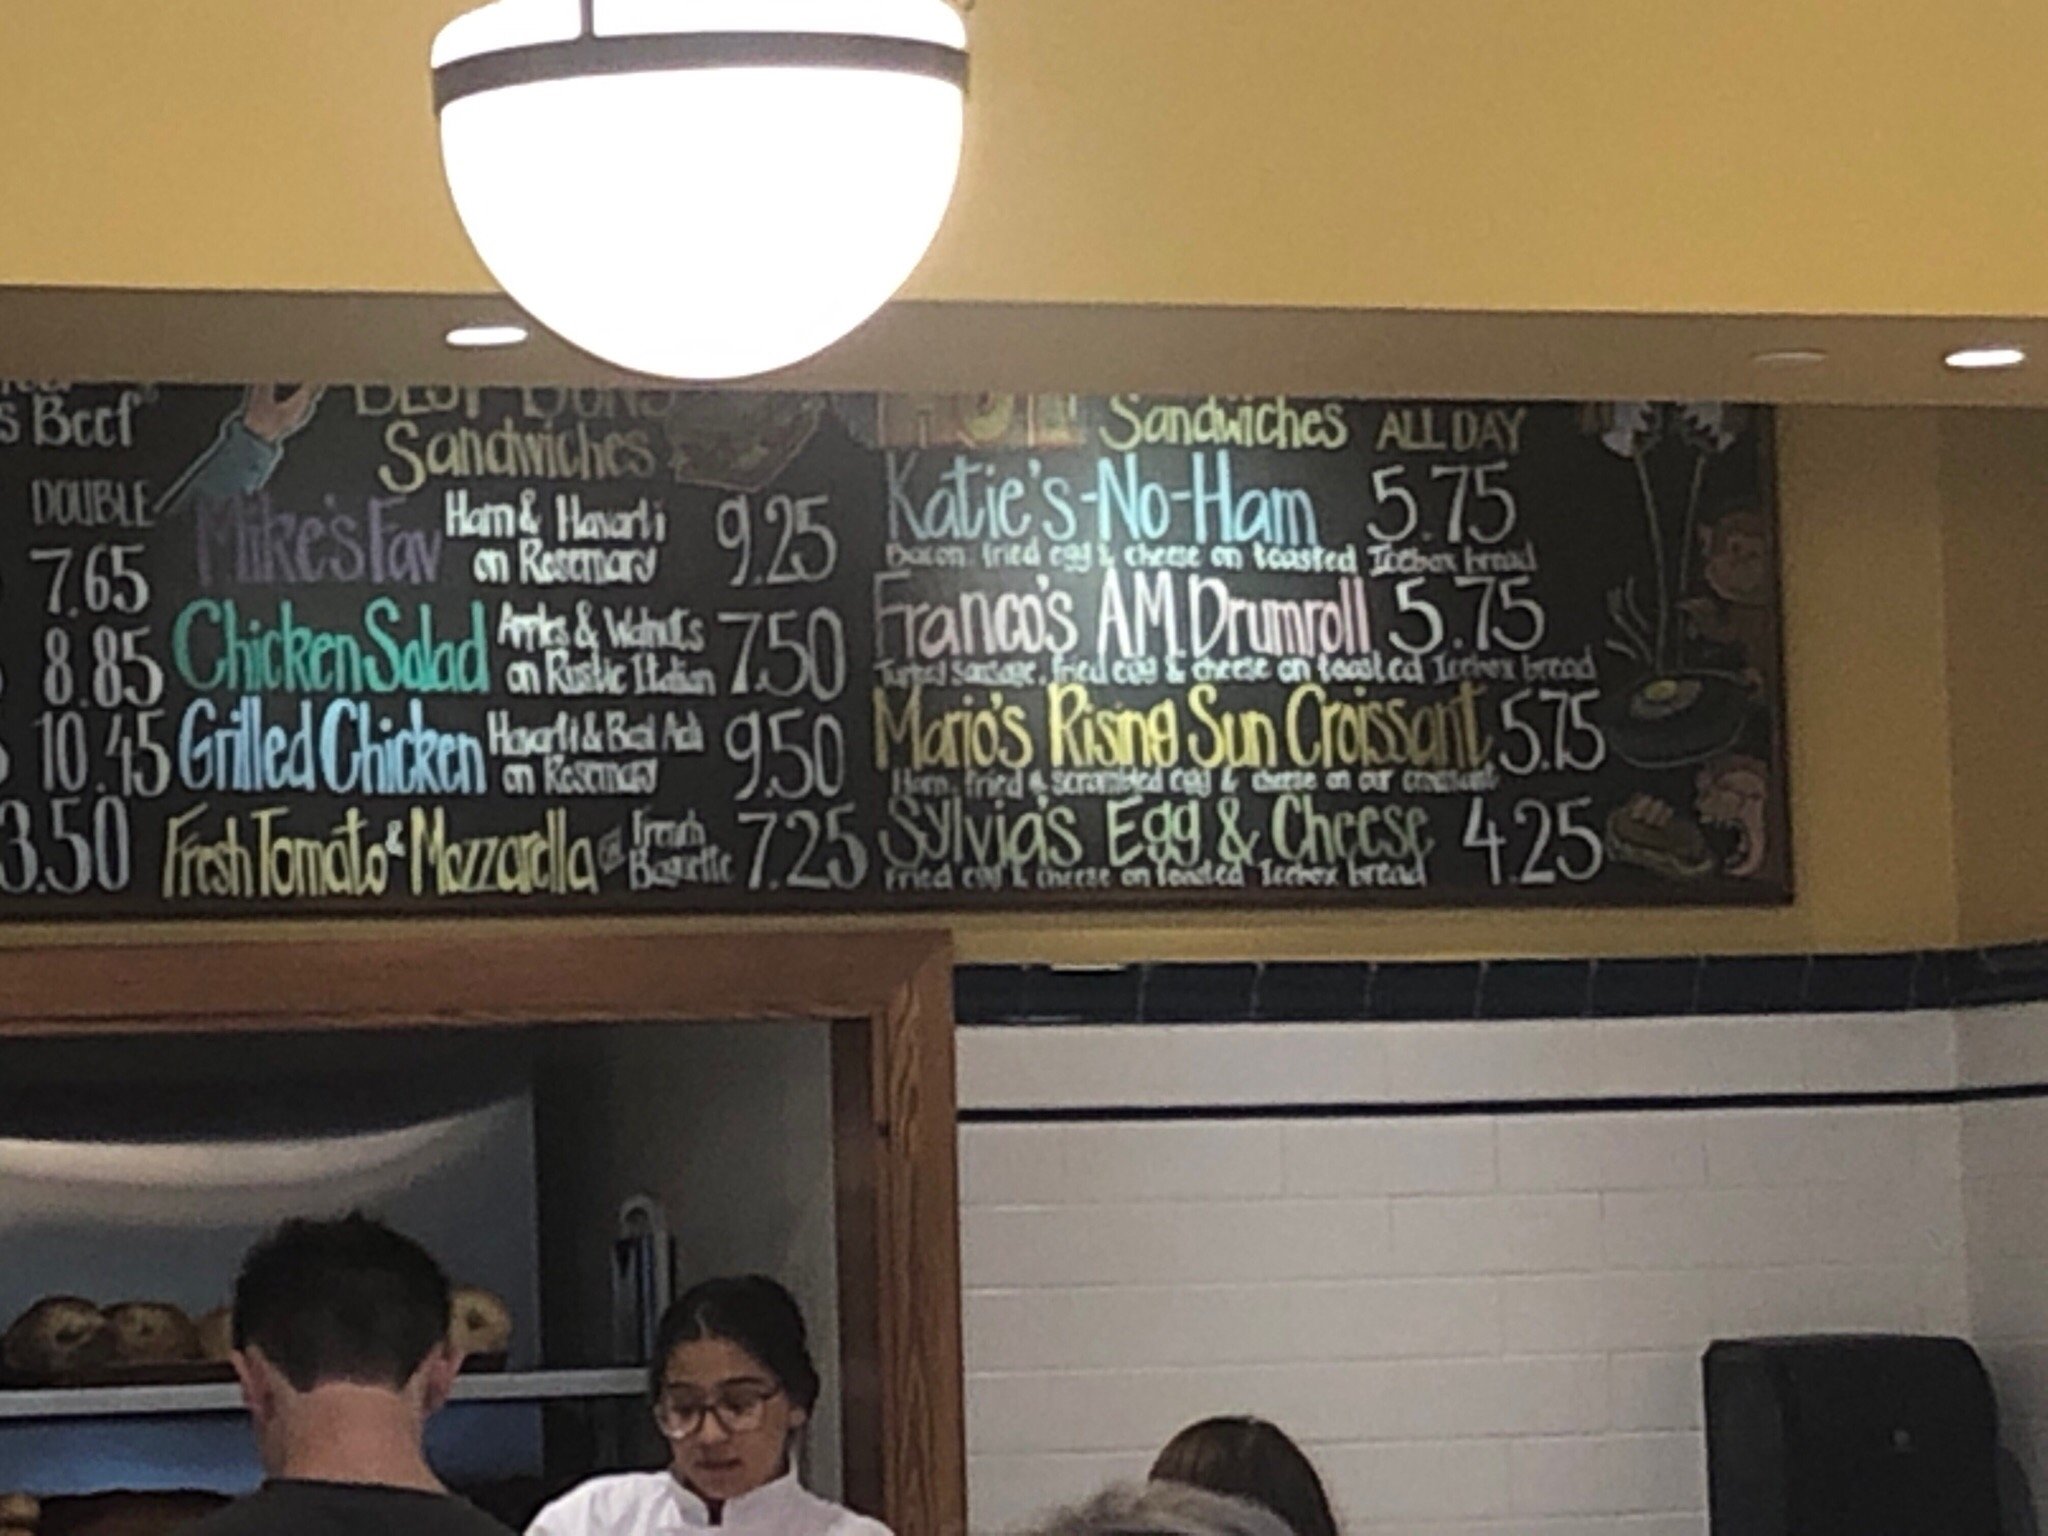 s Beef
DOUBLE
7.65
8.85
10.45
3.50
BEST BUNS
Sandwiches
Mike's Fav Ham & Havarti 9.25
on Rosemary
Chicken Salad Apples & Walnuts 7.50
on Rustic Italian
Grilled Chicken Havarti & 9.50
on Rosemary
Fresh Tomato & Mozzarella on French 7.25
Baguette
HOT Sandwiches ALL DAY
Katie's-No-Ham 5.75
Bacon, fried egg & cheese on toasted Icebox bread
Franco's AM Drumroll 5.75
Turkey sausage, fried egg & cheese on toasted Icebox bread
Mario's Rising Sun Croissant 5.75
Ham, fried & scrambled egg & cheese on our croissant
Sylvia's Egg & Cheese 4.25
Fried egg & cheese on toasted Icebox bread